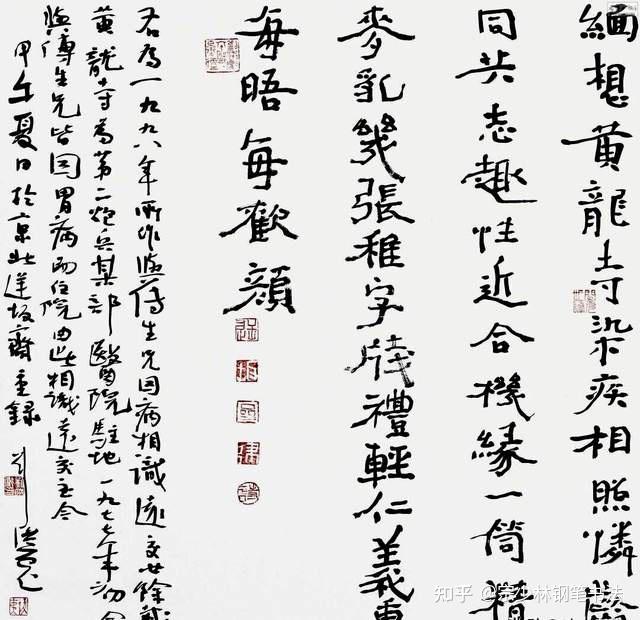 緬想黄龍寺染疾相照憐
同共志趣性近合機緣一筒精
麥乳幾張稚字牋禮輕仁義重
每晤每歡顔
右為一九九八年所作與傅生兄因病相識遠交廿餘載
黄龍寺為第二炮兵某部醫院駐地一九七七年初余
與傅生兄皆因胃病而住院由此相識遠交至今
甲午夏日於京北蓮坂齋重録
知乎 @宗少林钢笔书法